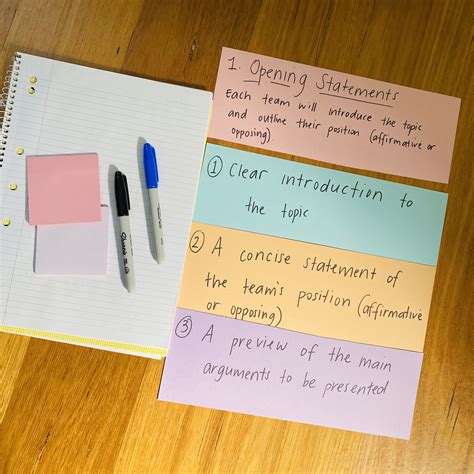 1. Opening Statements
Each team will introduce the topic
and outline their position (affirmative or
opposing).
① Clear introduction to
the topic
② A concise statement of
the team's position (affirmative
or opposing)
③ A preview of the main
arguments to be presented
Sharpie